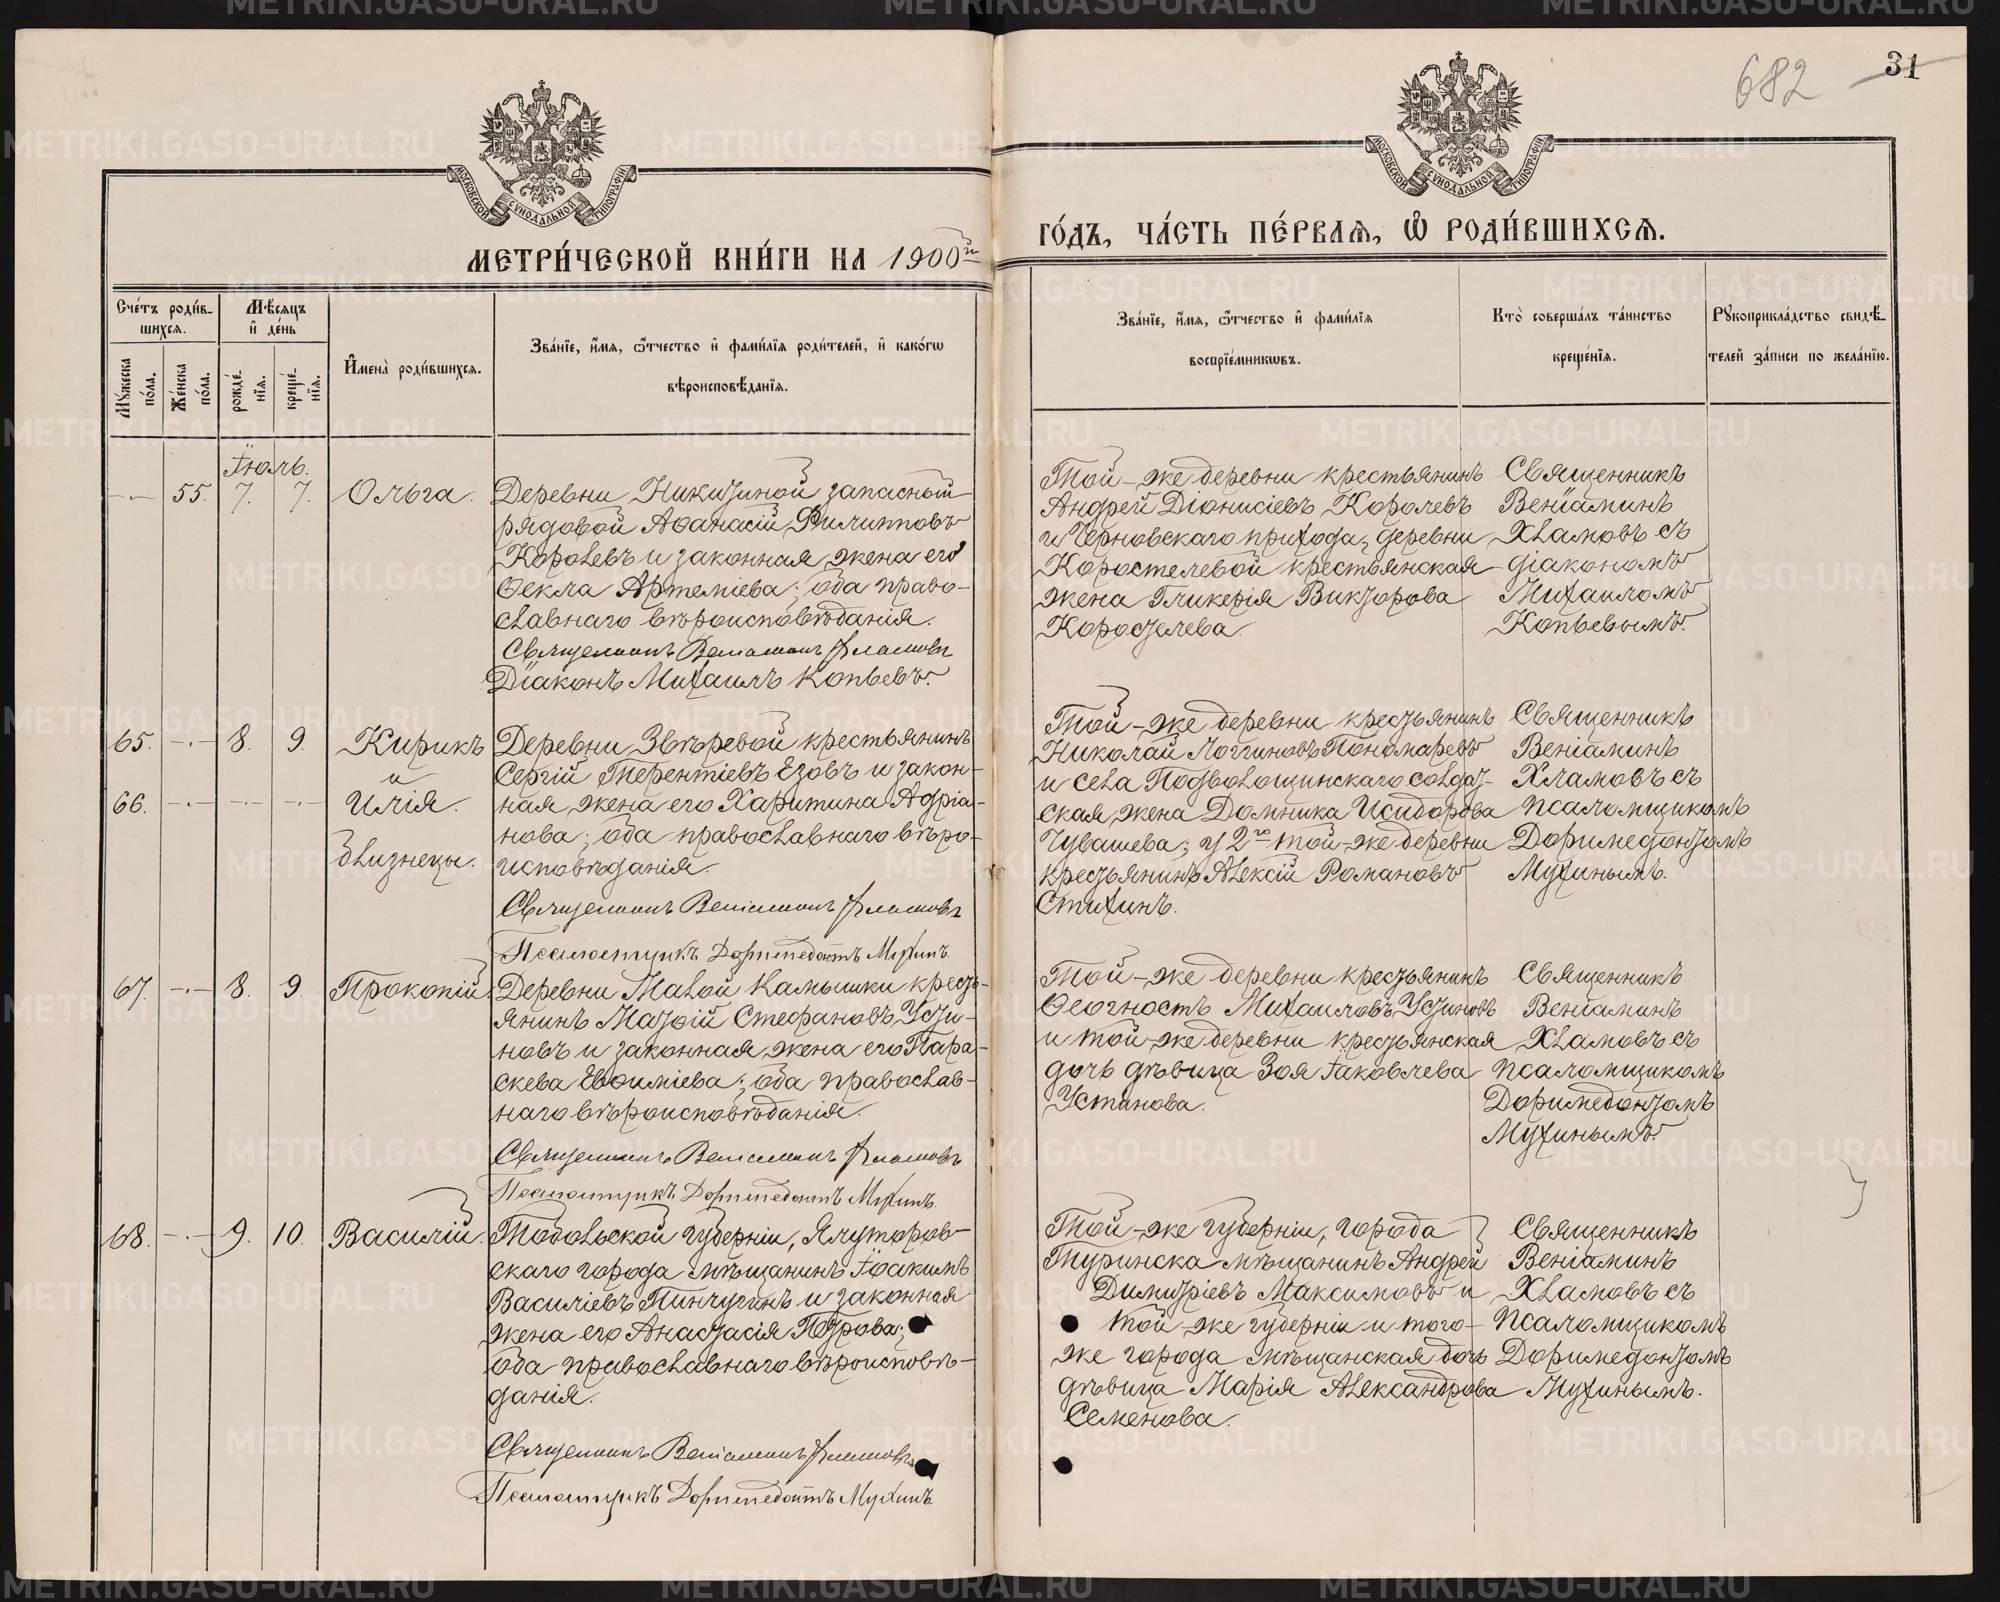 682
31
МОСКОВСКОЙ СУНОДАЛЬНОЙ ТИПОГРАФІИ
МОСКОВСКОЙ СУНОДАЛЬНОЙ ТИПОГРАФІИ
МЕТРИ́ЧЕСКОЙ КНИ́ГИ НА 1900й
ГО́ДЪ, ЧА́СТЬ ПЕ́РВАѦ, Ѽ РОДИ́ВШИХСѦ.
Сче́тъ роди́в-
шихсѧ.
Мѣ́сѧцъ
и҆ де́нь
Му́жеска по́ла.
Же́нска по́ла.
рожде́-
нїѧ.
креще́-
нїѧ.
И҆мена̀ роди́вшихсѧ.
Зва́нїе, и҆́мѧ, ѻ҆́тчество и҆ фами́лїѧ роди́телей, и҆ како́гѡ
вѣроисповѣ́данїѧ.
Зва́нїе, и҆́мѧ, ѻ҆́тчество и҆ фами́лїѧ
воспрїе́мникѡвъ.
Кто̀ соверша́лъ та́инство
креще́нїѧ.
Рꙋкоприкла́дство свидѣ́-
телей за́писи по жела́нїю.
Іюль.
55. 7. 7. Ольга.
Деревни Никитиной запасный
рядовой Аѳанасій Филипповъ
Королевъ и законная жена его
Ѳекла Артеміева; оба право-
славнаго вѣроисповѣданія.
Священникъ Веніаминъ Хламовъ
Діаконъ Михаилъ Копьевъ.
Той-же деревни крестьянинъ
Андрей Діонисіевъ Королевъ
и Черновскаго прихода, деревни
Коростелевой крестьянская
жена Гликерія Викторова
Коростелева.
Священникъ
Веніаминъ
Хламовъ съ
діакономъ
Михаиломъ
Копьевымъ.
65. 8. 9. Кирикъ
и
66. Илія.
близнецы.
Деревни Звѣревой крестьянинъ
Сергій Терентіевъ Езовъ и закон-
ная жена его Харитина Адріа-
нова; оба православнаго вѣро-
исповѣданія.
Священникъ Веніаминъ Хламовъ
Псаломщикъ Доримедонтъ Мухинъ.
Той-же деревни крестьянинъ
Николай Логгиновъ Пономаревъ
и села Подволощинскаго солдат-
ская жена Домника Исидорова
Чувашева; у 2го той-же деревни
крестьянинъ Алексій Романовъ
Стихинъ.
Священникъ
Веніаминъ
Хламовъ съ
псаломщикомъ
Доримедонтомъ
Мухинымъ.
67. 8. 9. Прокопій.
Деревни Малой Камышки кресть-
янинъ Матѳій Стефановъ Усти-
новъ и законная жена его Пара-
скева Евѳиміева; оба православ-
наго вѣроисповѣданія.
Священникъ Веніаминъ Хламовъ
Псаломщикъ Доримедонтъ Мухинъ.
Той-же деревни крестьянинъ
Ѳеогностъ Михаиловъ Устиновъ
и той-же деревни крестьянская
дочь дѣвица Зоя Іаковлева
Устинова.
Священникъ
Веніаминъ
Хламовъ съ
псаломщикомъ
Доримедонтомъ
Мухинымъ.
68. 9. 10. Василій.
Тобольской губерніи, Ялуторов-
скаго города мѣщанинъ Іоакимъ
Василіевъ Пинчугинъ и законная
жена его Анастасія Петрова;
оба православнаго вѣроисповѣ-
данія.
Священникъ Веніаминъ Хламовъ
Псаломщикъ Доримедонтъ Мухинъ
Той-же губерніи, города
Туринска мѣщанинъ Андрей
Димитріевъ Максимовъ и
той-же губерніи и того-
же города мѣщанская дочь
дѣвица Марія Александрова
Семенова.
Священникъ
Веніаминъ
Хламовъ съ
псаломщикомъ
Доримедонтомъ
Мухинымъ.
METRIKI.GASO-URAL.RU